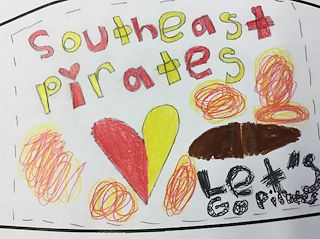 Southeast
Pirates
Let's
Go Pirates